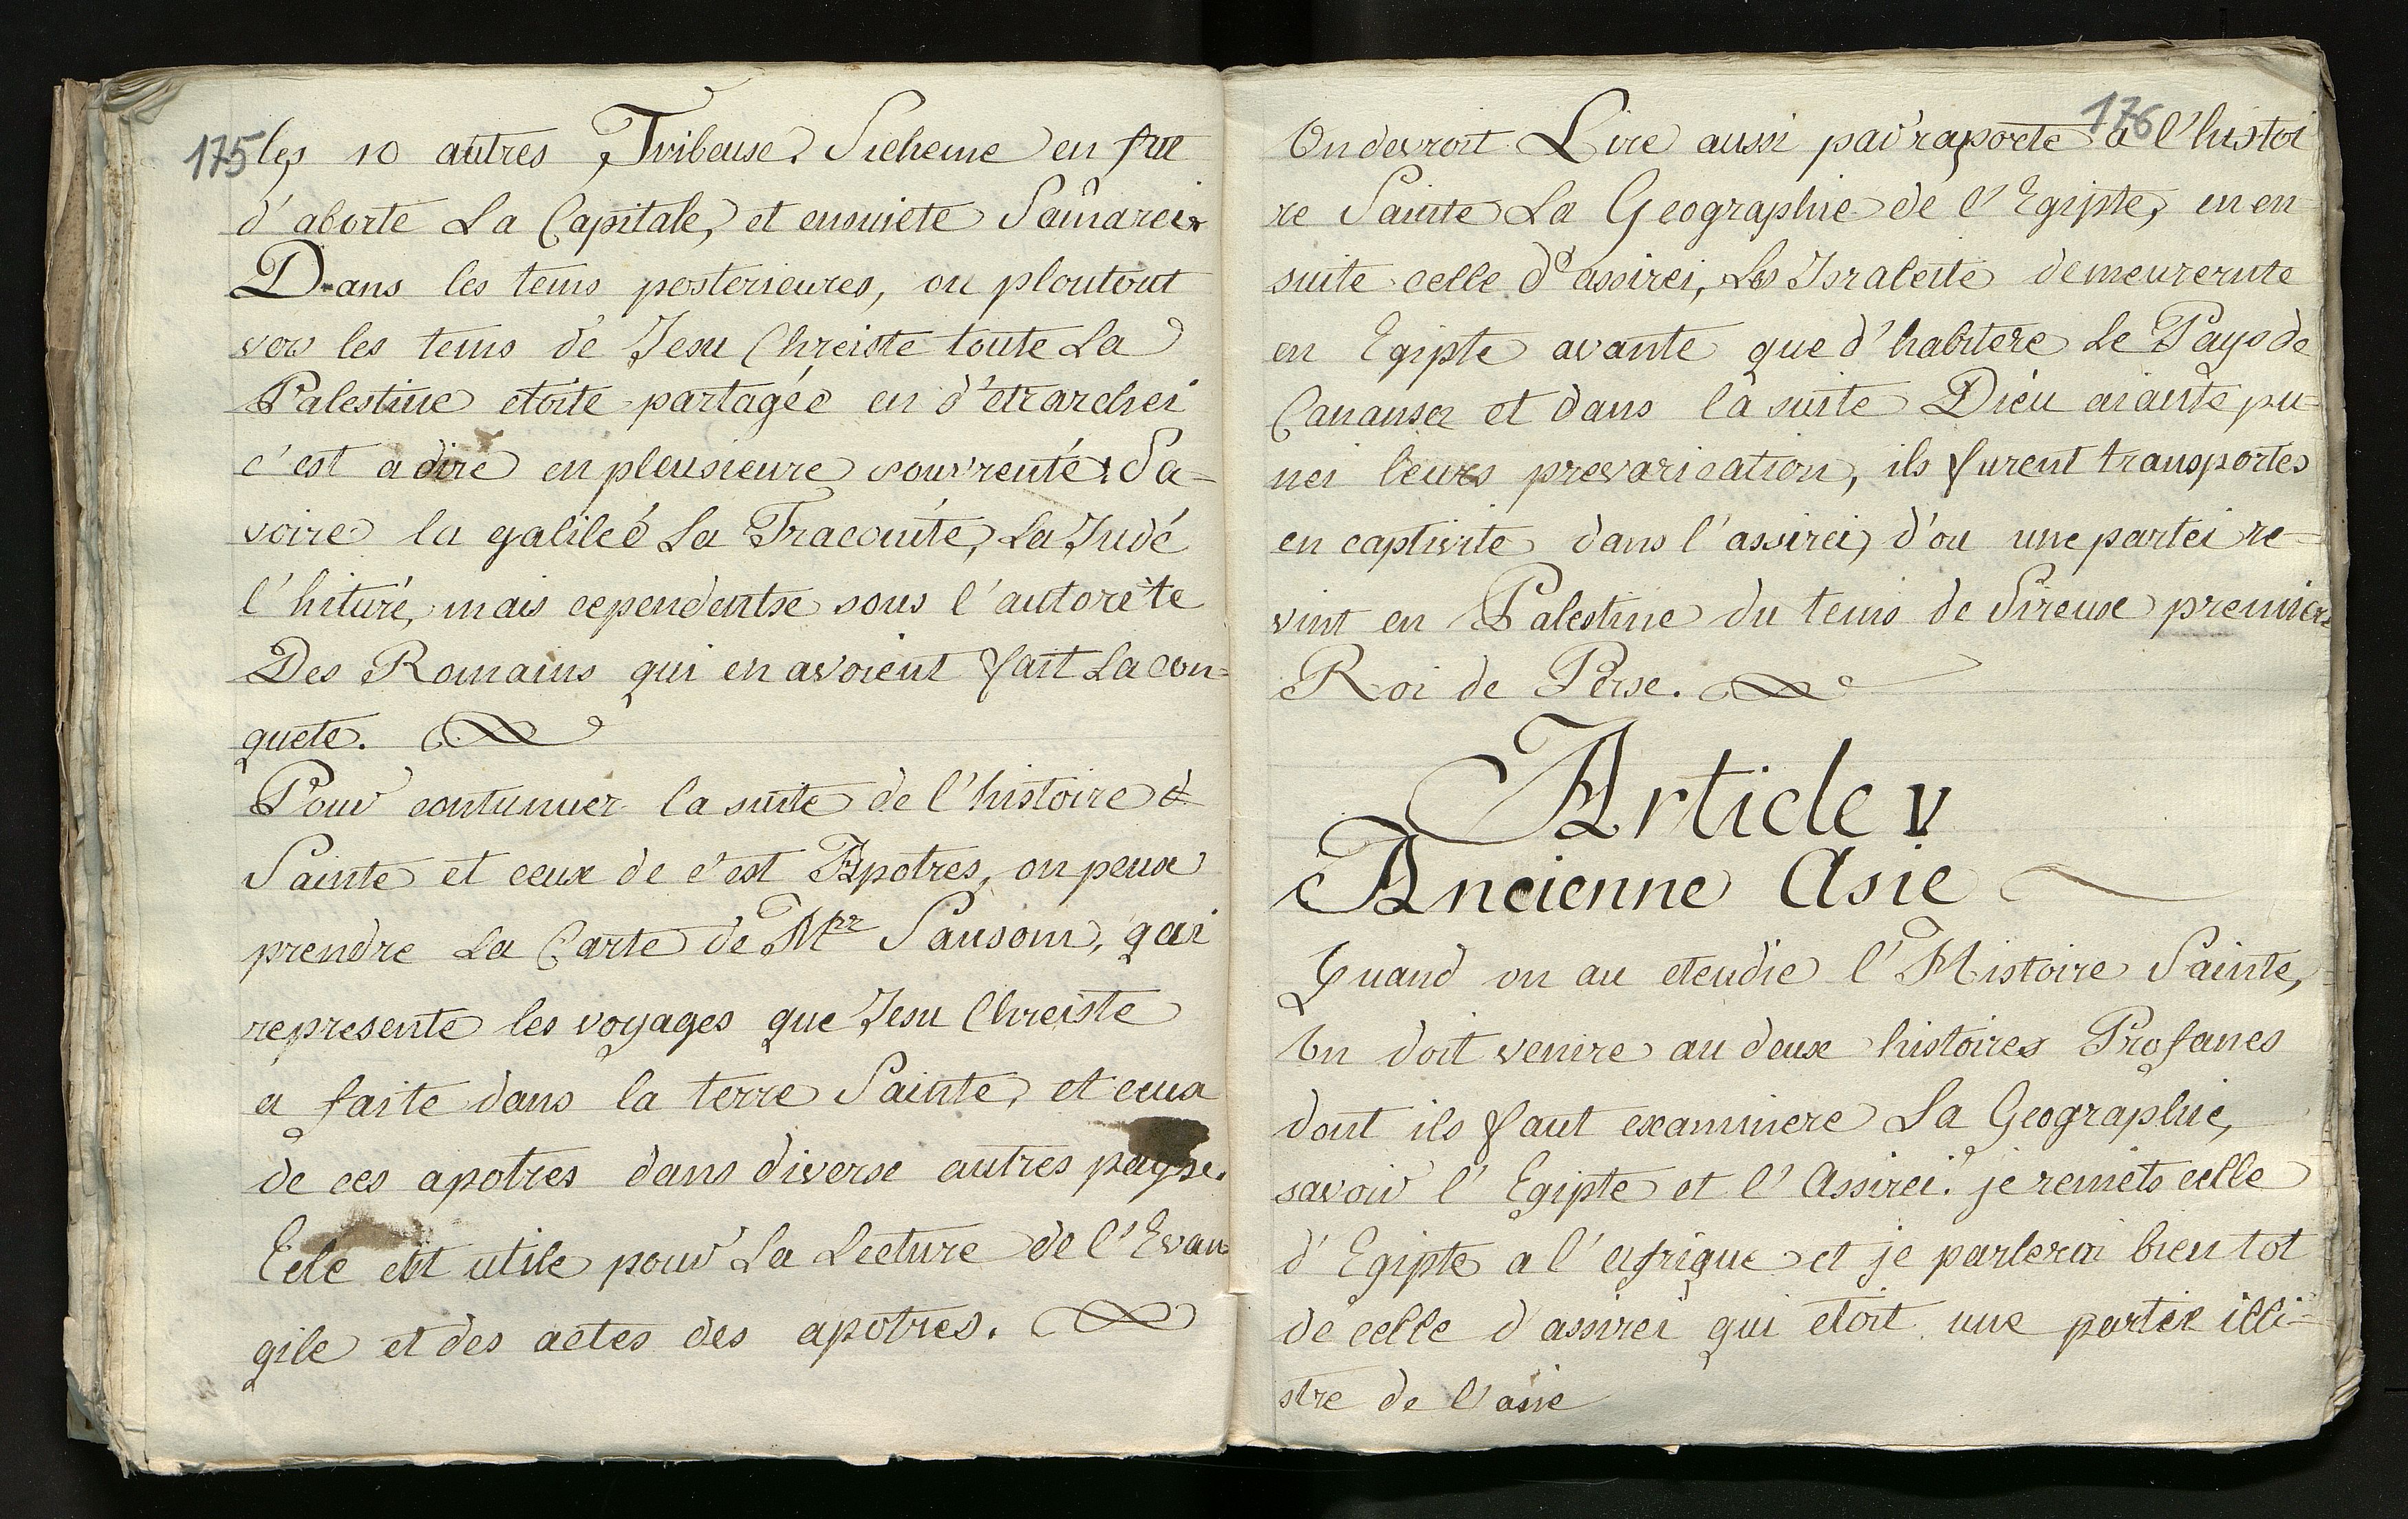 175
les 10 autres Tribeuse. Sicheme en fut
d'aborte La Capitale, et ensuiete Samarei
Dans les tems posterieures, ou ploutout
vers les tems de Jesu Chreiste toute La
Palestine etoite partagée en d'etrarchei
c'est a dire en pleusieure souvrenté. Sa=
voire la galileé La Traconite, La Judé
l'hituré, mais cependentse sous l'autorète
Des Romains qui en avoient fait La con=
quete.
Pour contunuer la suite de l'histoire d
Sainte et ceux de c'est Apotres, on peux
prendre La Carte de Mrr Sansom, qui
represente les voyages que Jesu Chreiste
a faite dans la terre Sainte, et ceux
de ces apotres dans diverse autres payse.
Eele est utile pour La Lecture de l'Evan
gile et des actes des apotres.
176
On devroit Lire aussi par raporte a l'histoi
re Sainte La Geographie de l'Egipte, en en
suite celle d'assirei, Les Israleite demeurernte
en Egipte avante que d'habitere Le Pays de
Cananser et dans la suite Dieu aiante pu=
nei leurs prevarication, ils furent transportes
en captivite dans l'assirei, d'ou une partei re=
vint en Palestine du tems de Sireuse premier
Roi de Perse.
Article V
Ancienne Asie
Quand on au eteudie l'Histoire Sainte,
On doit venire au deux histoires Profanes
dont ils faut examinere La Geographie,
savoir l'Egipte et l'Assirei. je remets celle
d'Egipte a l'afrique et je parlerai bien tot
de celle d'assirei qui etoit une partie illi=
stre de l'asie